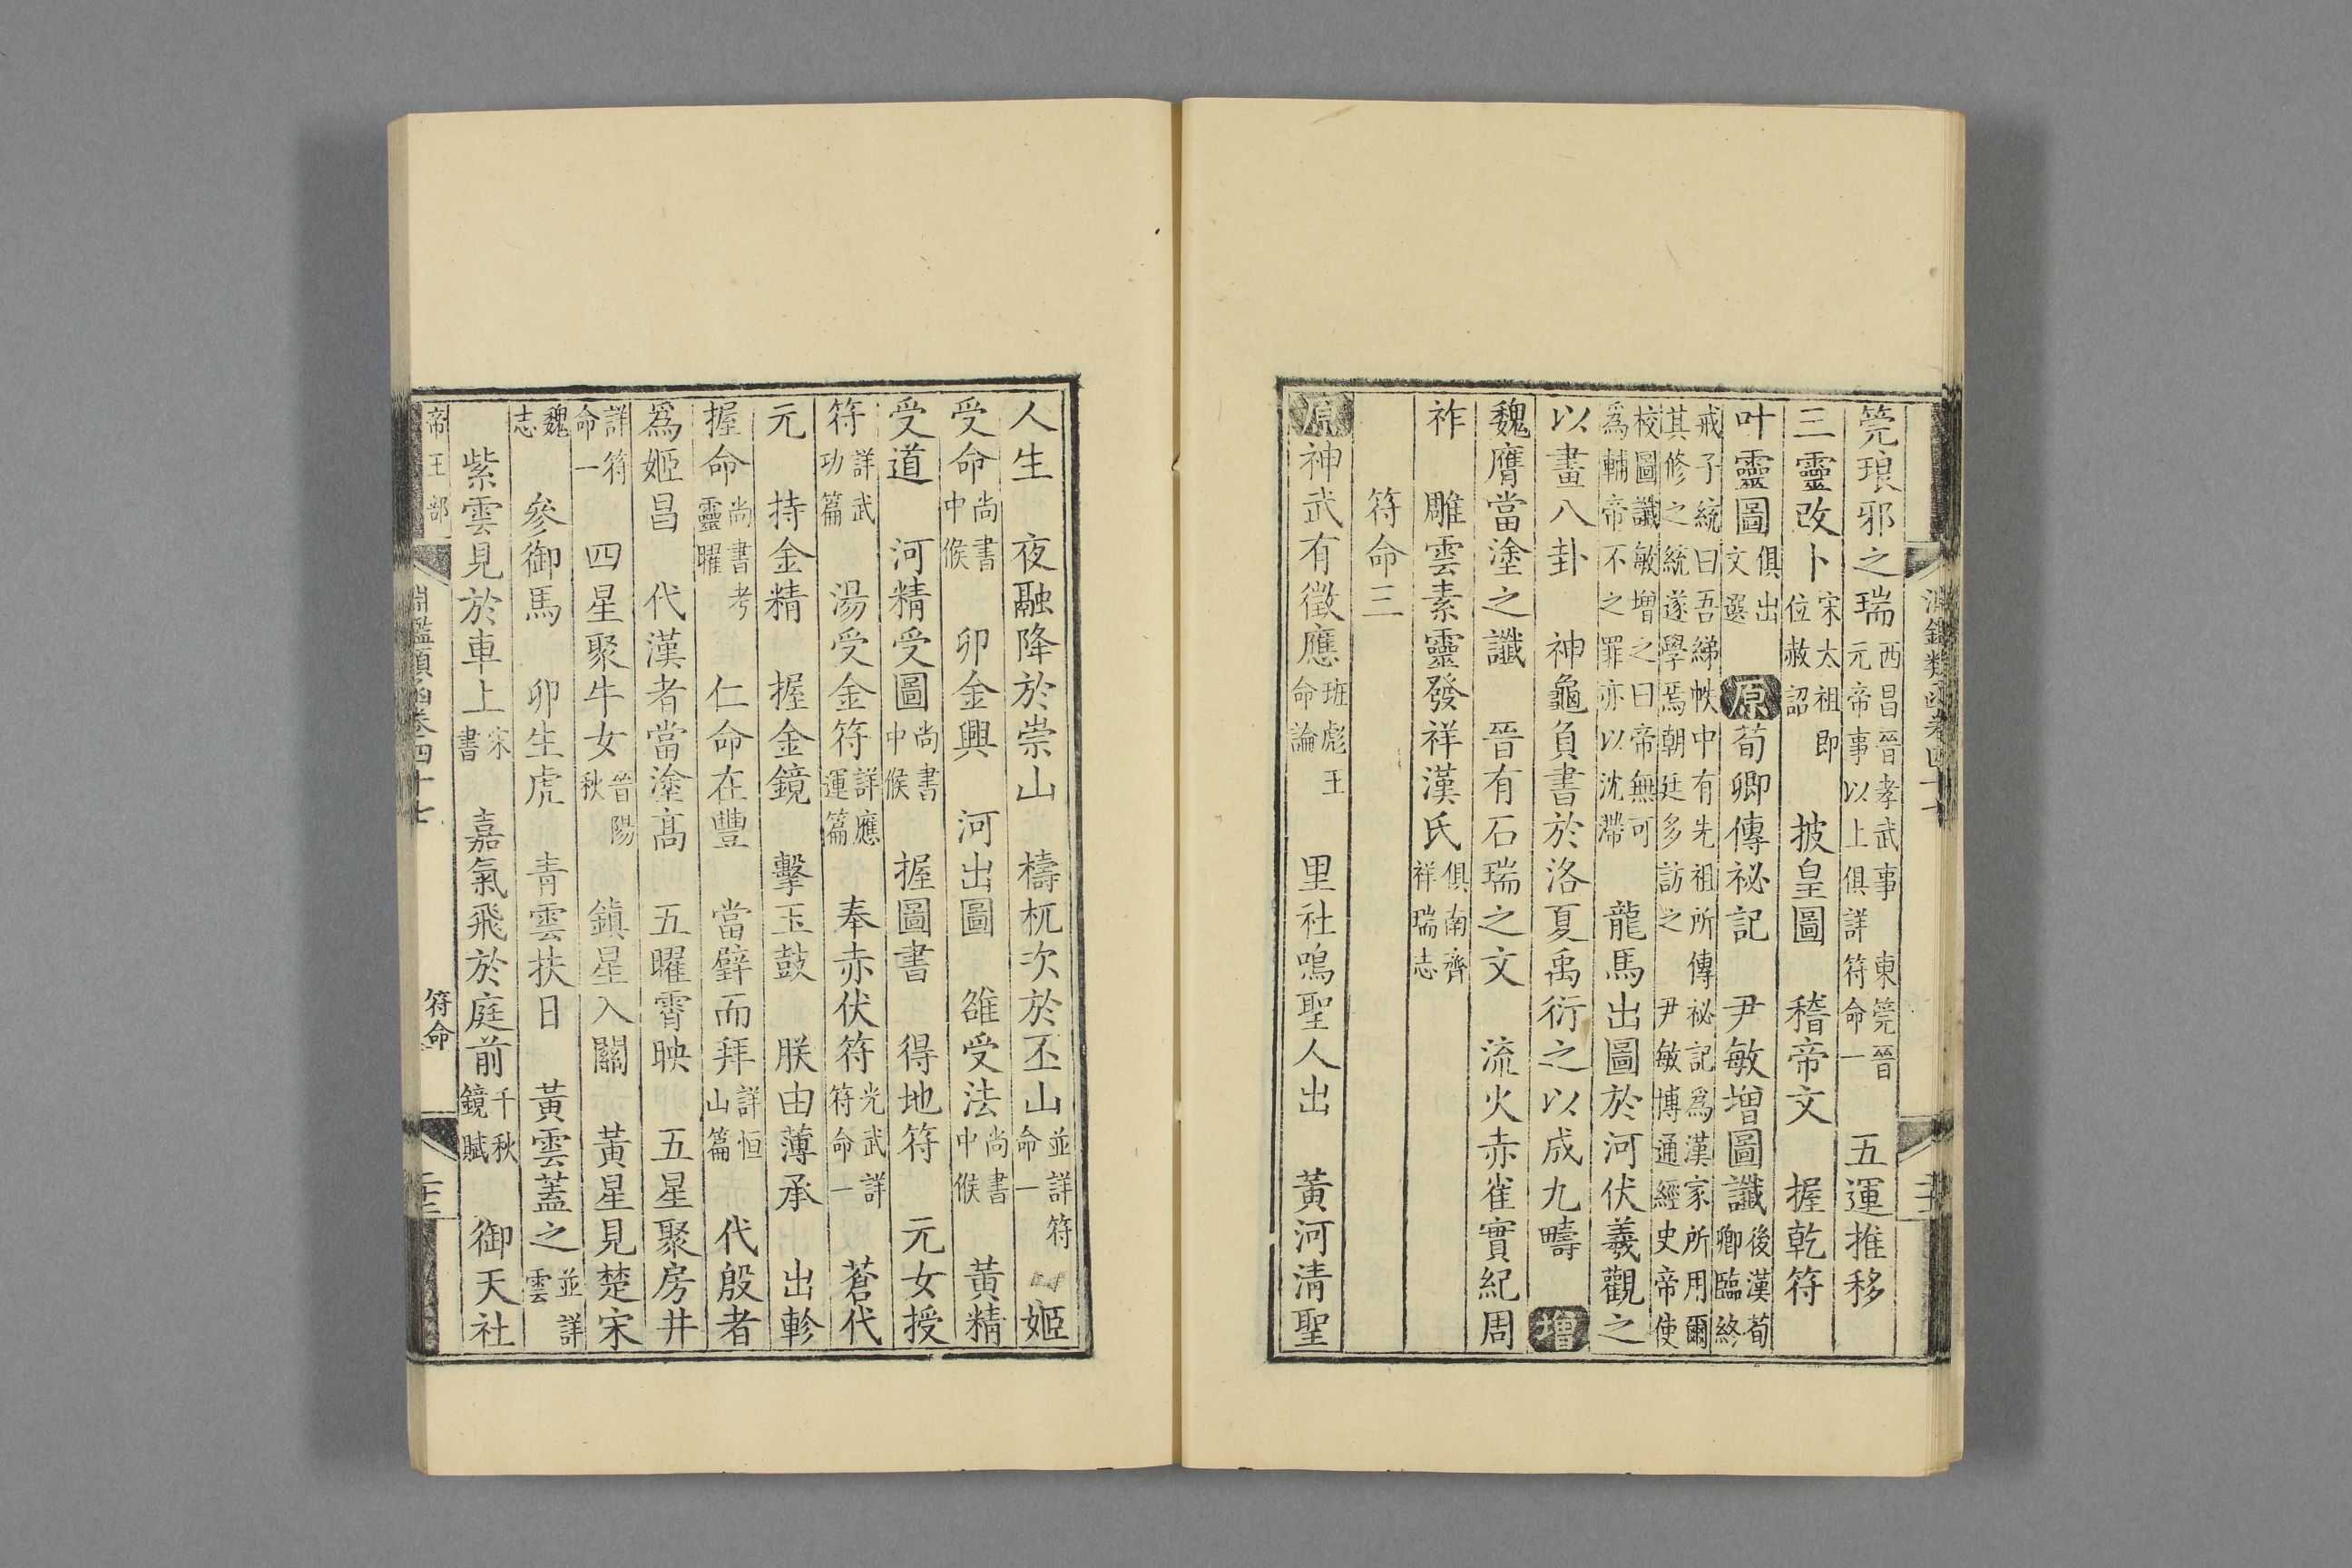 淵鑑類函卷四十七
莞琅邪之瑞西昌晉孝武事 東莞晉元帝事以上俱詳符命一 五運推移
三靈改卜宋太祖即位赦詔 披皇圖 稽帝文 握乾符
叶靈圖俱出文選 原荀卿傳祕記 尹敏增圖讖後漢荀卿臨終
戒子統曰吾綈帙中有先祖所傳祕記為漢家所用爾其修之統遂學焉朝廷多訪之 尹敏博通經史帝使
校圖讖敏增之曰帝無可為輔帝不之罪亦以沈滯 龍馬出圖於河伏羲觀之
以畫八卦 神龜負書於洛夏禹衍之以成九疇 增
魏膺當塗之讖 晉有石瑞之文 流火赤雀實紀周
祚 雕雲素靈發祥漢氏俱南齊祥瑞志
符命三
原神武有徵應班彪王命論 里社鳴聖人出 黃河清聖
人生 夜融降於崇山 檮杌次於丕山並詳符命一 姬
受命尚書中候 卯金興 河出圖 雒受法尚書中候 黃精
受道 河精受圖尚書中候 握圖書 得地符 元女授
符詳武功篇 湯受金符詳應運篇 奉赤伏符光武詳符命一 蒼代
元 持金精 握金鏡 擊玉鼓 朕由薄承 出軫
握命尚書考靈曜 仁命在豐 當辟而拜詳恒山篇 代殷者
為姬昌 代漢者當塗高 五曜霄映 五星聚房井
詳符命一 四星聚牛女晉陽秋 鎮星入關 黃星見楚宋
魏志 參御馬 卯生虎 青雲扶日 黃雲蓋之並詳雲
紫雲見於車上宋書 嘉氣飛於庭前千秋鏡賦 御天社
帝王部 淵鑑類函卷四十七 符命 二十三